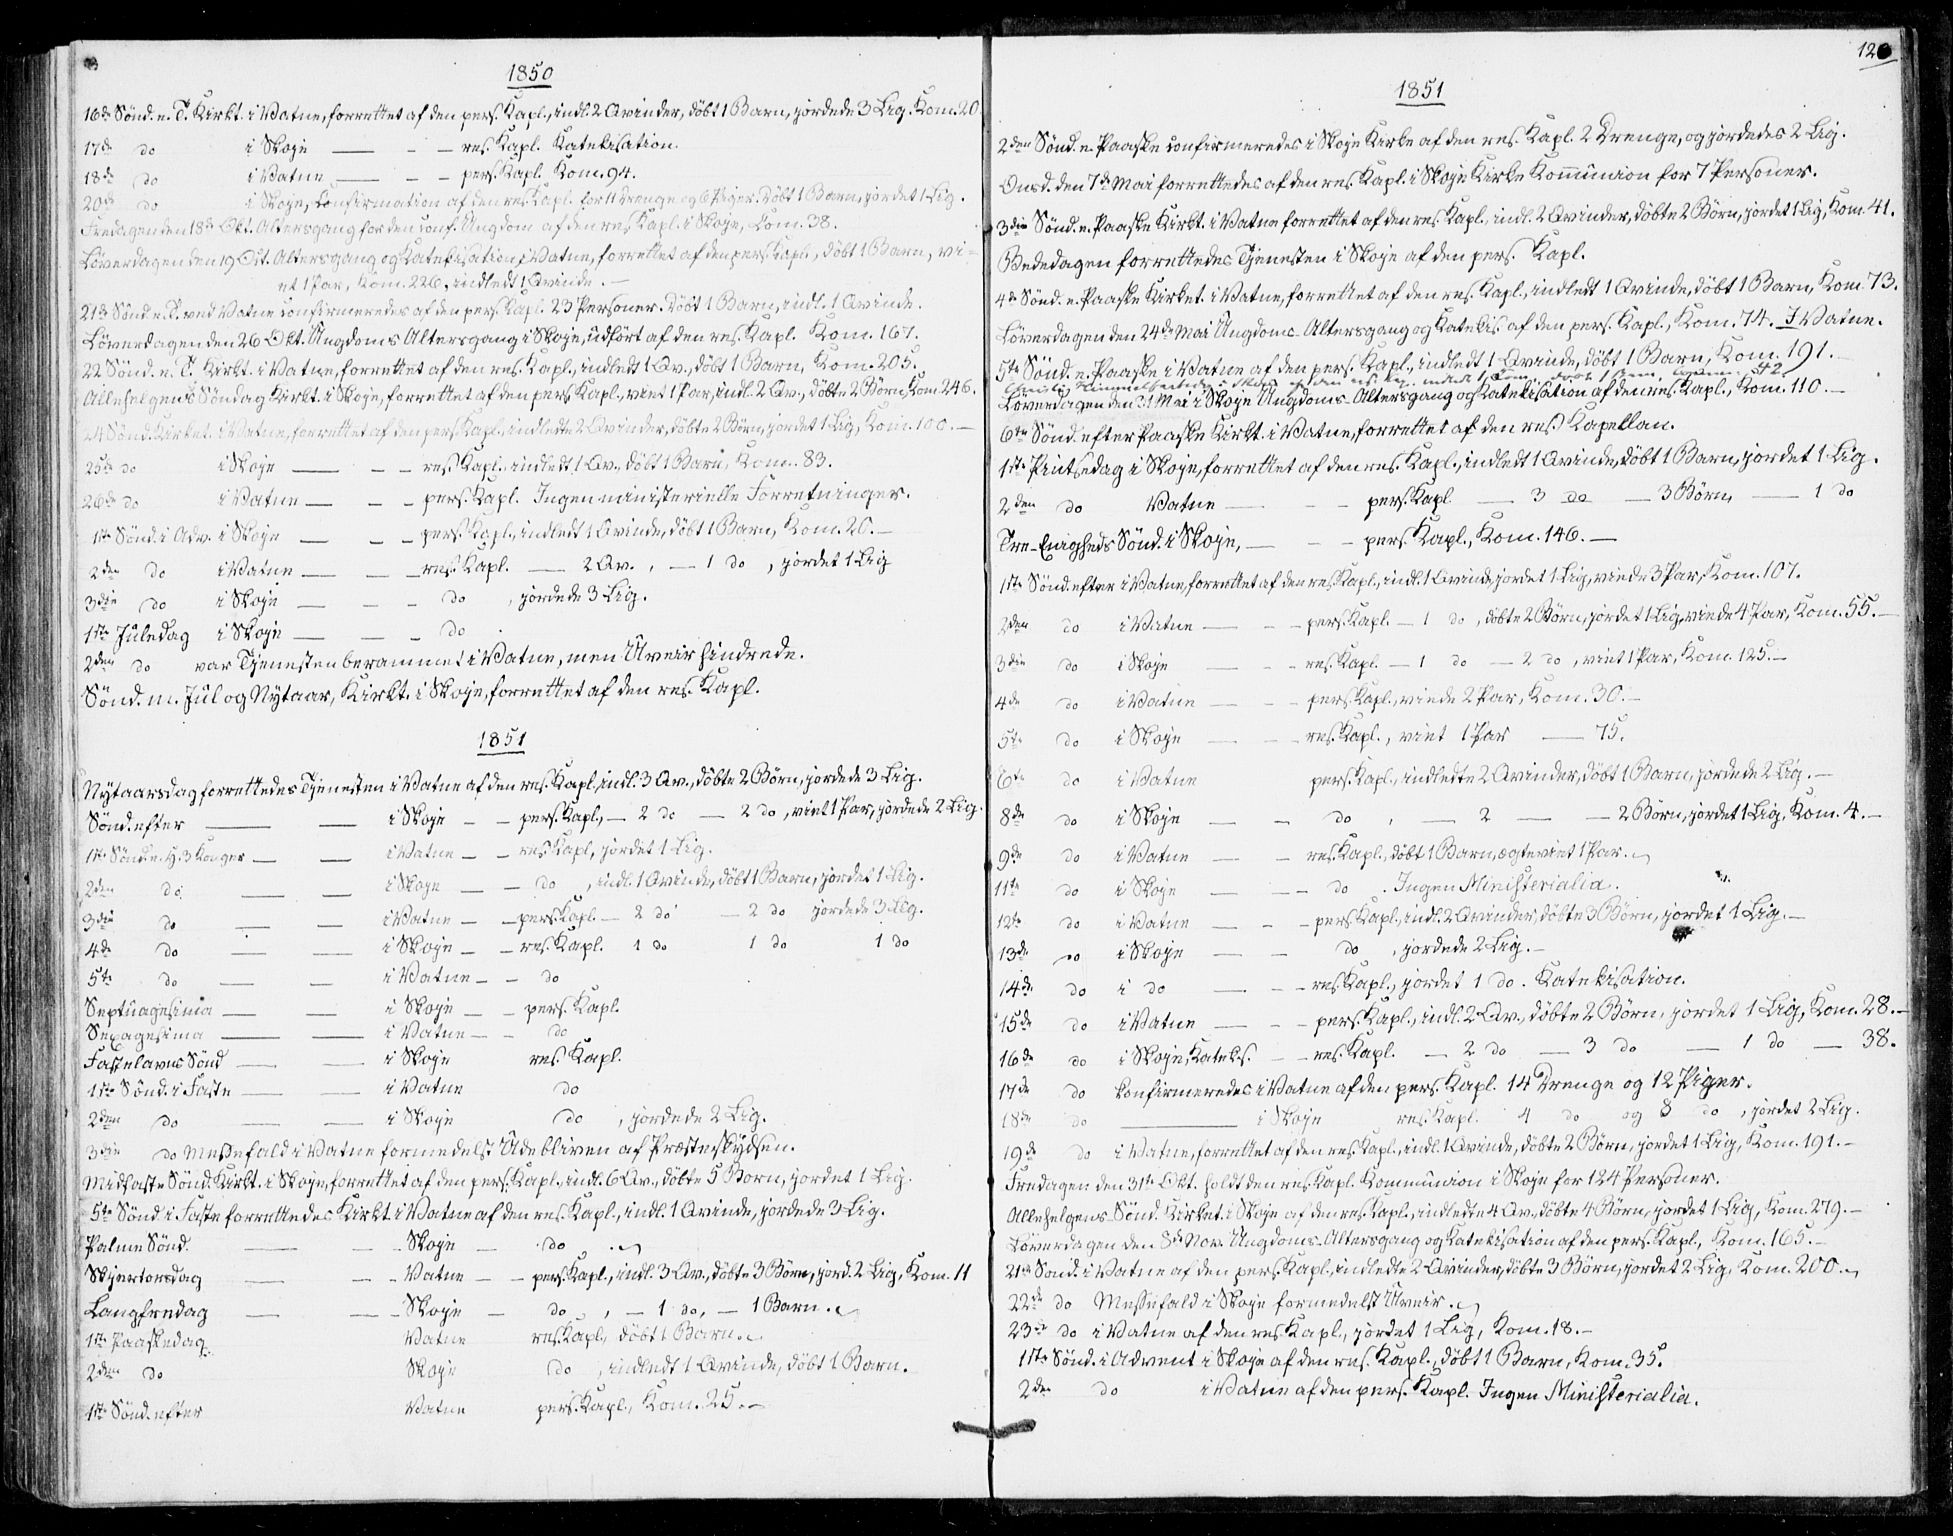 1850
16de Sønd. e. T. Kirkt. i Vatne, forrettet af den pers. Kapl., indl. 2 Qvinder, döbt 1 Barn, jordede 3 Lig. Kom. 20
17de do i Skoje — - - res. Kapl. Katekisation.
18de do i Vatne — - - pers. Kapl. Kom. 94.
20de do i Skoje, Confirmation af den res. Kapl. for 11 Drenge og 6 Piger. Döbt 1 Barn, jordet 1 Lig.
Fredagen den 18de Okt. Altersgang for den conf. Ungdom af den res. Kapl. i Skoje, Kom. 38.
Löverdagen den 19 Oct. Altersgang og Katekisation i Vatne, forrettet af den pers. Kapl., döbt 1 Barn, vi-
et 1 Par, Kom. 226, indledt 1 Qvinde. -
21de Sønd. e. T. ved Vatne confirmeredes af den pers. Kapl. 23 Personer. Döbt 1 Barn, indl. 1 Qvinde.
Löverdagen den 26 Okt. Ungdoms Altersgang i Skoje, udfört af den res. Kapl. Kom. 167.
22 Sønd. e. T. Kirkt. i Vatne, forrettet af den res. Kapl., indledt 1 Qv., döbt 1 Barn, Kom. 205.
Allehelgens Söndag Kirkt. i Skoje, forrettet af den pers. Kapl., viet 1 Par, indl. 2 Qv., döbte 2 Børn, Kom. 246.
24 Sønd. Kirket. i Vatne, forrettet af den pers. Kapl., indledte 2 Qvinder, döbte 2 Børn, jordet 1 Lig, Kom. 100. —
25de do i Skoje — - - res. Kapl. indledt 1 Qv., döbt 1 Barn, Kom. 83.
26de do i Vatne — - - pers. Kapl. Ingen ministerielle Forretninger.
1ste Sønd. i Adv. i Skoje — - - pers. Kapl., indledt 1 Qvinde, döbt 1 Barn, Kom. 20. —
2den do i Vatne — - - res. Kapl. — 2 Qv., — 1 do, jordet 1 Lig
3die do i Skoje — - - do, jordede 3 Lig.
1ste Juledag i Skoje — - - do
2den do var Tjenesten berammet i Vatne, men Uveir hindrede.
Sönd. m. Jul og Nytaar, Kirkt. i Skoje, forrettet af den res. Kapl.
1851
Nytaarsdag forrettedes Tjenesten i Vatne af den res. Kapl., indl. 3 Qv., döbte 2 Børn, jordede 3 Lig.
Sönd. efter — — i Skoje - - pers. Kapl., — 2 do — 2 do, viet 1 Par, jordede 2 Lig.
1ste Sønd. e. H. 3 Konger — — i Vatne - - res. Kapl., jordet 1 Lig.
2den do — — i Skoje - - do, indl. 1 Qvinde, döbt 1 Barn, jordet 1 Lig.
3die do — — i Vatne - - pers. Kapl. — 2 do — 2 do jordede 3 Lig.
4de do — — i Skoje - - res. Kapl. 1 do 1 do 1 do
5te do — — i Vatne - - do
Septuagesima — — i Skoje - - pers. Kapl.
Sexagesima — — i Vatne - - do
Fastelavns Sönd — — i Skoje res. Kapl.
1ste Sønd. i Faste — — i Vatne do
2den do — — i Skoje do, jordede 2 Lig.
3die do Messefald i Vatne formedelst Udebliven af Præsteskydsen.
Midfaste Sönd. Kirkt. i Skoje, forrettet af den pers. Kapl., indl. 6 Qv., döbte 5 Børn, jordet 1 Lig.
5te Sönd i Faste forrettedes Kirkt. i Vatne af den res. Kapl., indl. 1 Qvinde, jordede 3 Lig.
Palme Sönd. — - - Skoje — do
Skjertorsdag — - - Vatne - - pers. Kapl., indl. 3 Qv., döbte 3 Børn, jord. 2 Lig, Kom. 11
Langfredag — - - Skoje - do, - 1 do, - 1 Barn.
1ste Paaskedag Vatne res. Kapl., döbt 1 Barn.
2den do Skoje do, indledt 1 Qvinde, döbt 1 Barn.
1ste Sönd. efter Vatne pers. Kapl., Kom. 25. -
1851
2den Sønd. e. Paaske confirmeredes i Skoje Kirke af den res. Kapl. 2 Drenge, og jordedes 2 Lig.
Onsd. den 7de Mai forrettedes af den res. Kapl. i Skoje Kirke Kommunion for 7 Personer.
3die Sønd. e. Paaske Kirkt. i Vatne forrettet af den res. Kapl., indl. 2 Qvinder, döbte 2 Børn, jordet 1 Lig, Kom. 41.
Bededagen forrettedes Tjenesten i Skoje af den pers. Kapl.
4de Sønd. e. Paaske Kirket. i Vatne, forrettet af den res. Kapl., indledt 1 Qvinde, döbt 1 Barn, Kom. 73.
Löverdagen den 24de Mai Ungdoms-Altersgang og Katekis. af den pers. Kapl., Kom. 74. I Vatne.
5te Sönd. e. Paaske i Vatne af den pers. Kapl., indledt 1 Qvinde, döbt 1 Barn, Kom. 191. —
Christi Himmelfartsdag i Skoje af den res. Kap. indledt 1 döbt 1 Barn
Löverdagen den 31 Mai i Skoje Ungdoms-Altersgang og Katekisation af den res. Kapl., Kom. 110. —
6te Sønd. efter Paaske Kirkt. i Vatne, forrettet af den res. Kapellan.
1ste Pintsedag i Skoje, forrettet af den res. Kapl., indledt 1 Qvinde, döbt 1 Barn, jordet 1 Lig.
2den do Vatne — - - pers. Kapl — 3 do — 3 Børn, — 1 do
Tre-Enigheds Sönd. i Skoje, — - - pers. Kapl., Kom. 146. —
1ste Sønd. efter i Vatne, forrettet af den res. Kapl., indl. 1 Qvinde, jordet 1 Lig, viede 3 Par, Kom. 107.
2den do i Vatne — - - pers. Kapl. — 1 do, döbte 2 Børn, jordet 1 Lig, viede 4 Par, Kom. 55. —
3die do i Skoje — - - res. Kapl. — 1 do — 2 do, viet 1 Par, Kom. 125. —
4de do i Vatne — - - pers. Kapl., viede 2 Par, Kom. 30. —
5te do i Skoje — - - res. Kapl., viet 1 Par — 75.
6te do i Vatne pers. Kapl., indledte 2 Qvinder, döbt 1 Barn, jordede 2 Lig. —
8de do i Skoje — - do, — 2 — — 2 Børn, jordet 1 Lig, Kom. 4. —
9de do i Vatne — - res. Kapl., döbt 1 Barn, ægteviet 1 Par.
11te do i Skoje — - - do. Ingen Ministerialia.
12te do i Vatne — - - pers. Kapl., indl. 2 Qvinder, döbte 3 Børn, jordet 1 Lig. —
13de do i Skoje — - do, jordede 2 Lig. —
14de do i do — - - res. Kapl., jordet 1 do. Katekisation.
15de do i Vatne — - - pers. Kapl., indl. 2 Qv., döbte 2 Børn, jordet 1 Lig, Kom. 28. —
16de do i Skoje, Kateks. - - res. Kapl. — 2 do — 3 do — 1 do — 38.
17de do Confirmeredes i Vatne af den pers. Kapl. 14 Drenge og 12 Piger.
18de do ——— i Skoje res. Kapl. 4 do og 8 do, jordet 2 Lig.
19de do i Vatne, forrettet af den res. Kapl., indl. 1 Qvinde, döbte 2 Børn, jordet 1 Lig, Kom. 191. —
Fredagen den 31te Okt. holdt den res. Kapl. Kommunion i Skoje for 124 Personer.
Allehelgens Sønd. Kirket. i Skoje af den res. Kapl., indledte 4 Qv., döbte 4 Børn, jordet 1 Lig, Kom. 279. —
Löverdagen den 8de Nov. Ungdoms-Altersgang og Katekisation af den pers. Kapl., Kom. 165. —
21de Sønd. i Vatne af den pers. Kapl., indledte 2 Qvinder, döbte 3 Børn, jordet 2 Lig, Kom. 200.
22de do Messefald i Skoje formedelst Uveir.
23de do i Vatne af den res. Kapl., jordet 1 Lig, Kom. 18. —
1ste Sönd. i Advent i Skoje af den res. Kapl., döbt 1 Barn, Kom. 35.
2den do i Vatne af den pers. Kapl. Ingen Ministerialia.